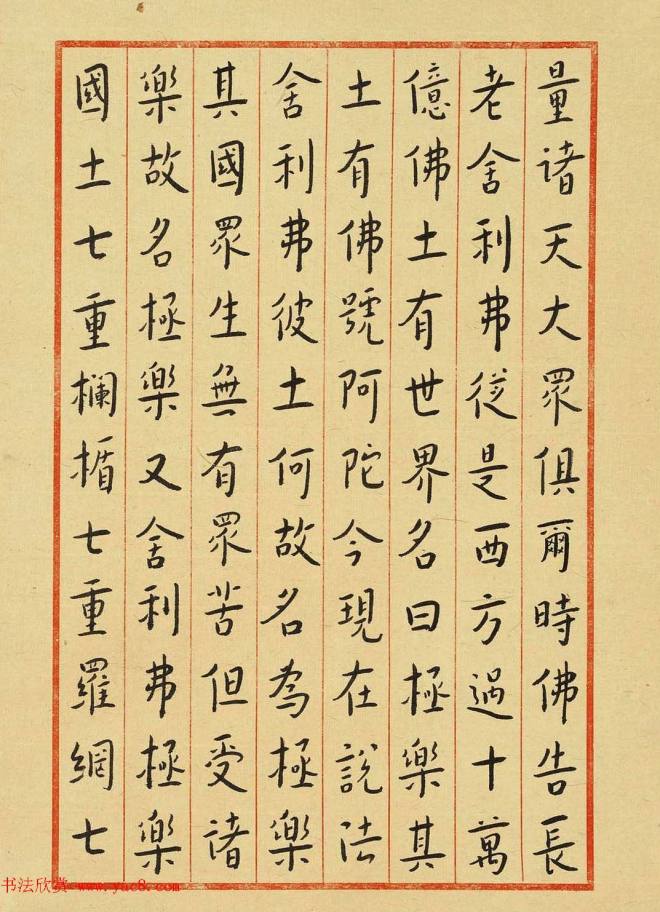 量諸天大眾俱爾時佛告長
老舍利弗從是西方過十萬
億佛土有世界名曰極樂其
土有佛號阿陀今現在說法
舍利弗彼土何故名為極樂
其國眾生無有眾苦但受諸
樂故名極樂又舍利弗極樂
國土七重欄楯七重羅網七
书法欣赏 www.yac8.com